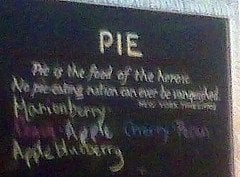 PIE
Pie is the food of the heroic
No pie eating nation can ever be vanquished
NEW YORK TIMES
Marionberry
Apple Cherry Pecan
Apple Blueberry